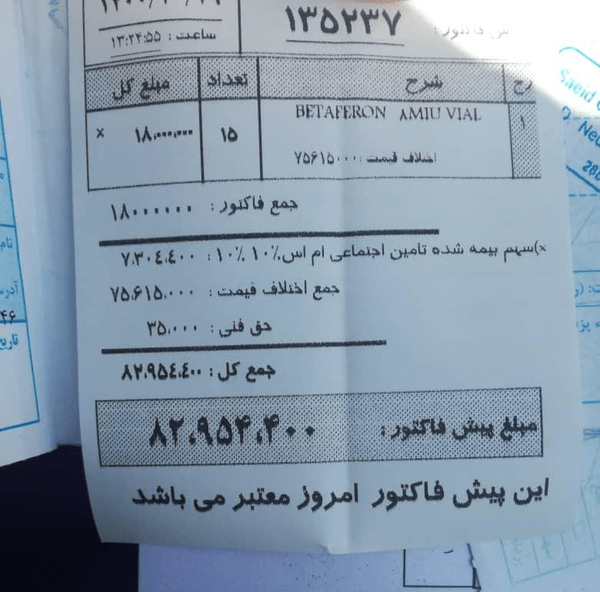 ۱۳۵۲۳۷
ساعت : ۱۳:۲۴:۵۵
شرح تعداد مبلغ کل
۱ BETAFERON ۸MIU VIAL ۱۵ ۱۸,۰۰۰,۰۰۰ ×
اختلاف قیمت : ۷۵۶۱۵۰۰۰
جمع فاکتور : ۱۸۰۰۰۰۰۰
×)سهم بیمه شده تامین اجتماعی ام اس۱۰٪ ۱۰٪ : ۷,۳۰۴,۴۰۰
جمع اختلاف قیمت : ۷۵,۶۱۵,۰۰۰
حق فنی : ۳۵,۰۰۰
جمع کل : ۸۲,۹۵۴,۴۰۰
مبلغ پیش فاکتور : ۸۲,۹۵۴,۴۰۰
این پیش فاکتور امروز معتبر می باشد
Saeid